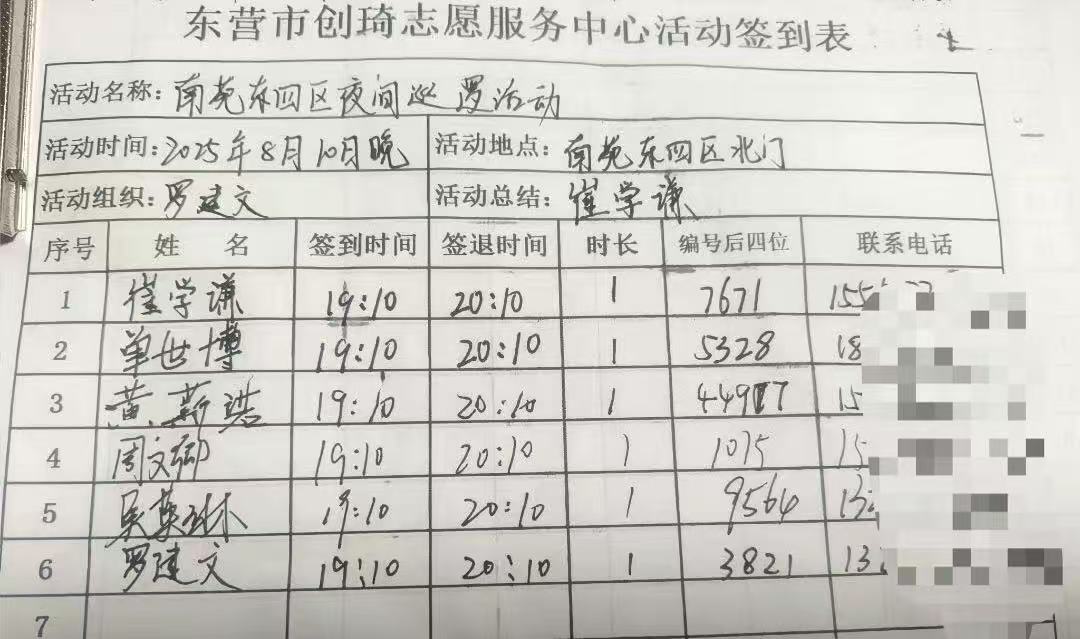 东营市创琦志愿服务中心活动签到表
活动名称: 南苑东四区夜间巡罗活动
活动时间: 2025年8月10日晚 活动地点: 南苑东四区北门
活动组织: 罗建文 活动总结: 崔学谦
序号 姓 名 签到时间 签退时间 时长 编号后四位 联系电话
1 崔学谦 19:10 20:10 1 7671 155
2 单世博 19:10 20:10 1 5328 18
3 黄 19:10 20:10 1 15
4 周文卿 19:10 20:10 1 1075 15
5 吴 19:10 20:10 1 9564 13
6 罗建文 19:10 20:10 1 3821 13
7